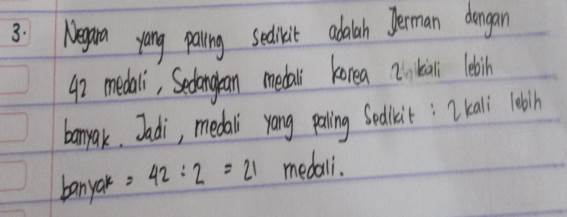 3. Negara yang paling sedikit adalah Jerman dengan
42 medali, Sedangkan medali korea 2 kali lebih
banyak. Jadi, medali yang paling Sedikit : 2 kali lebih
banyak = 42 : 2 = 21 medali.